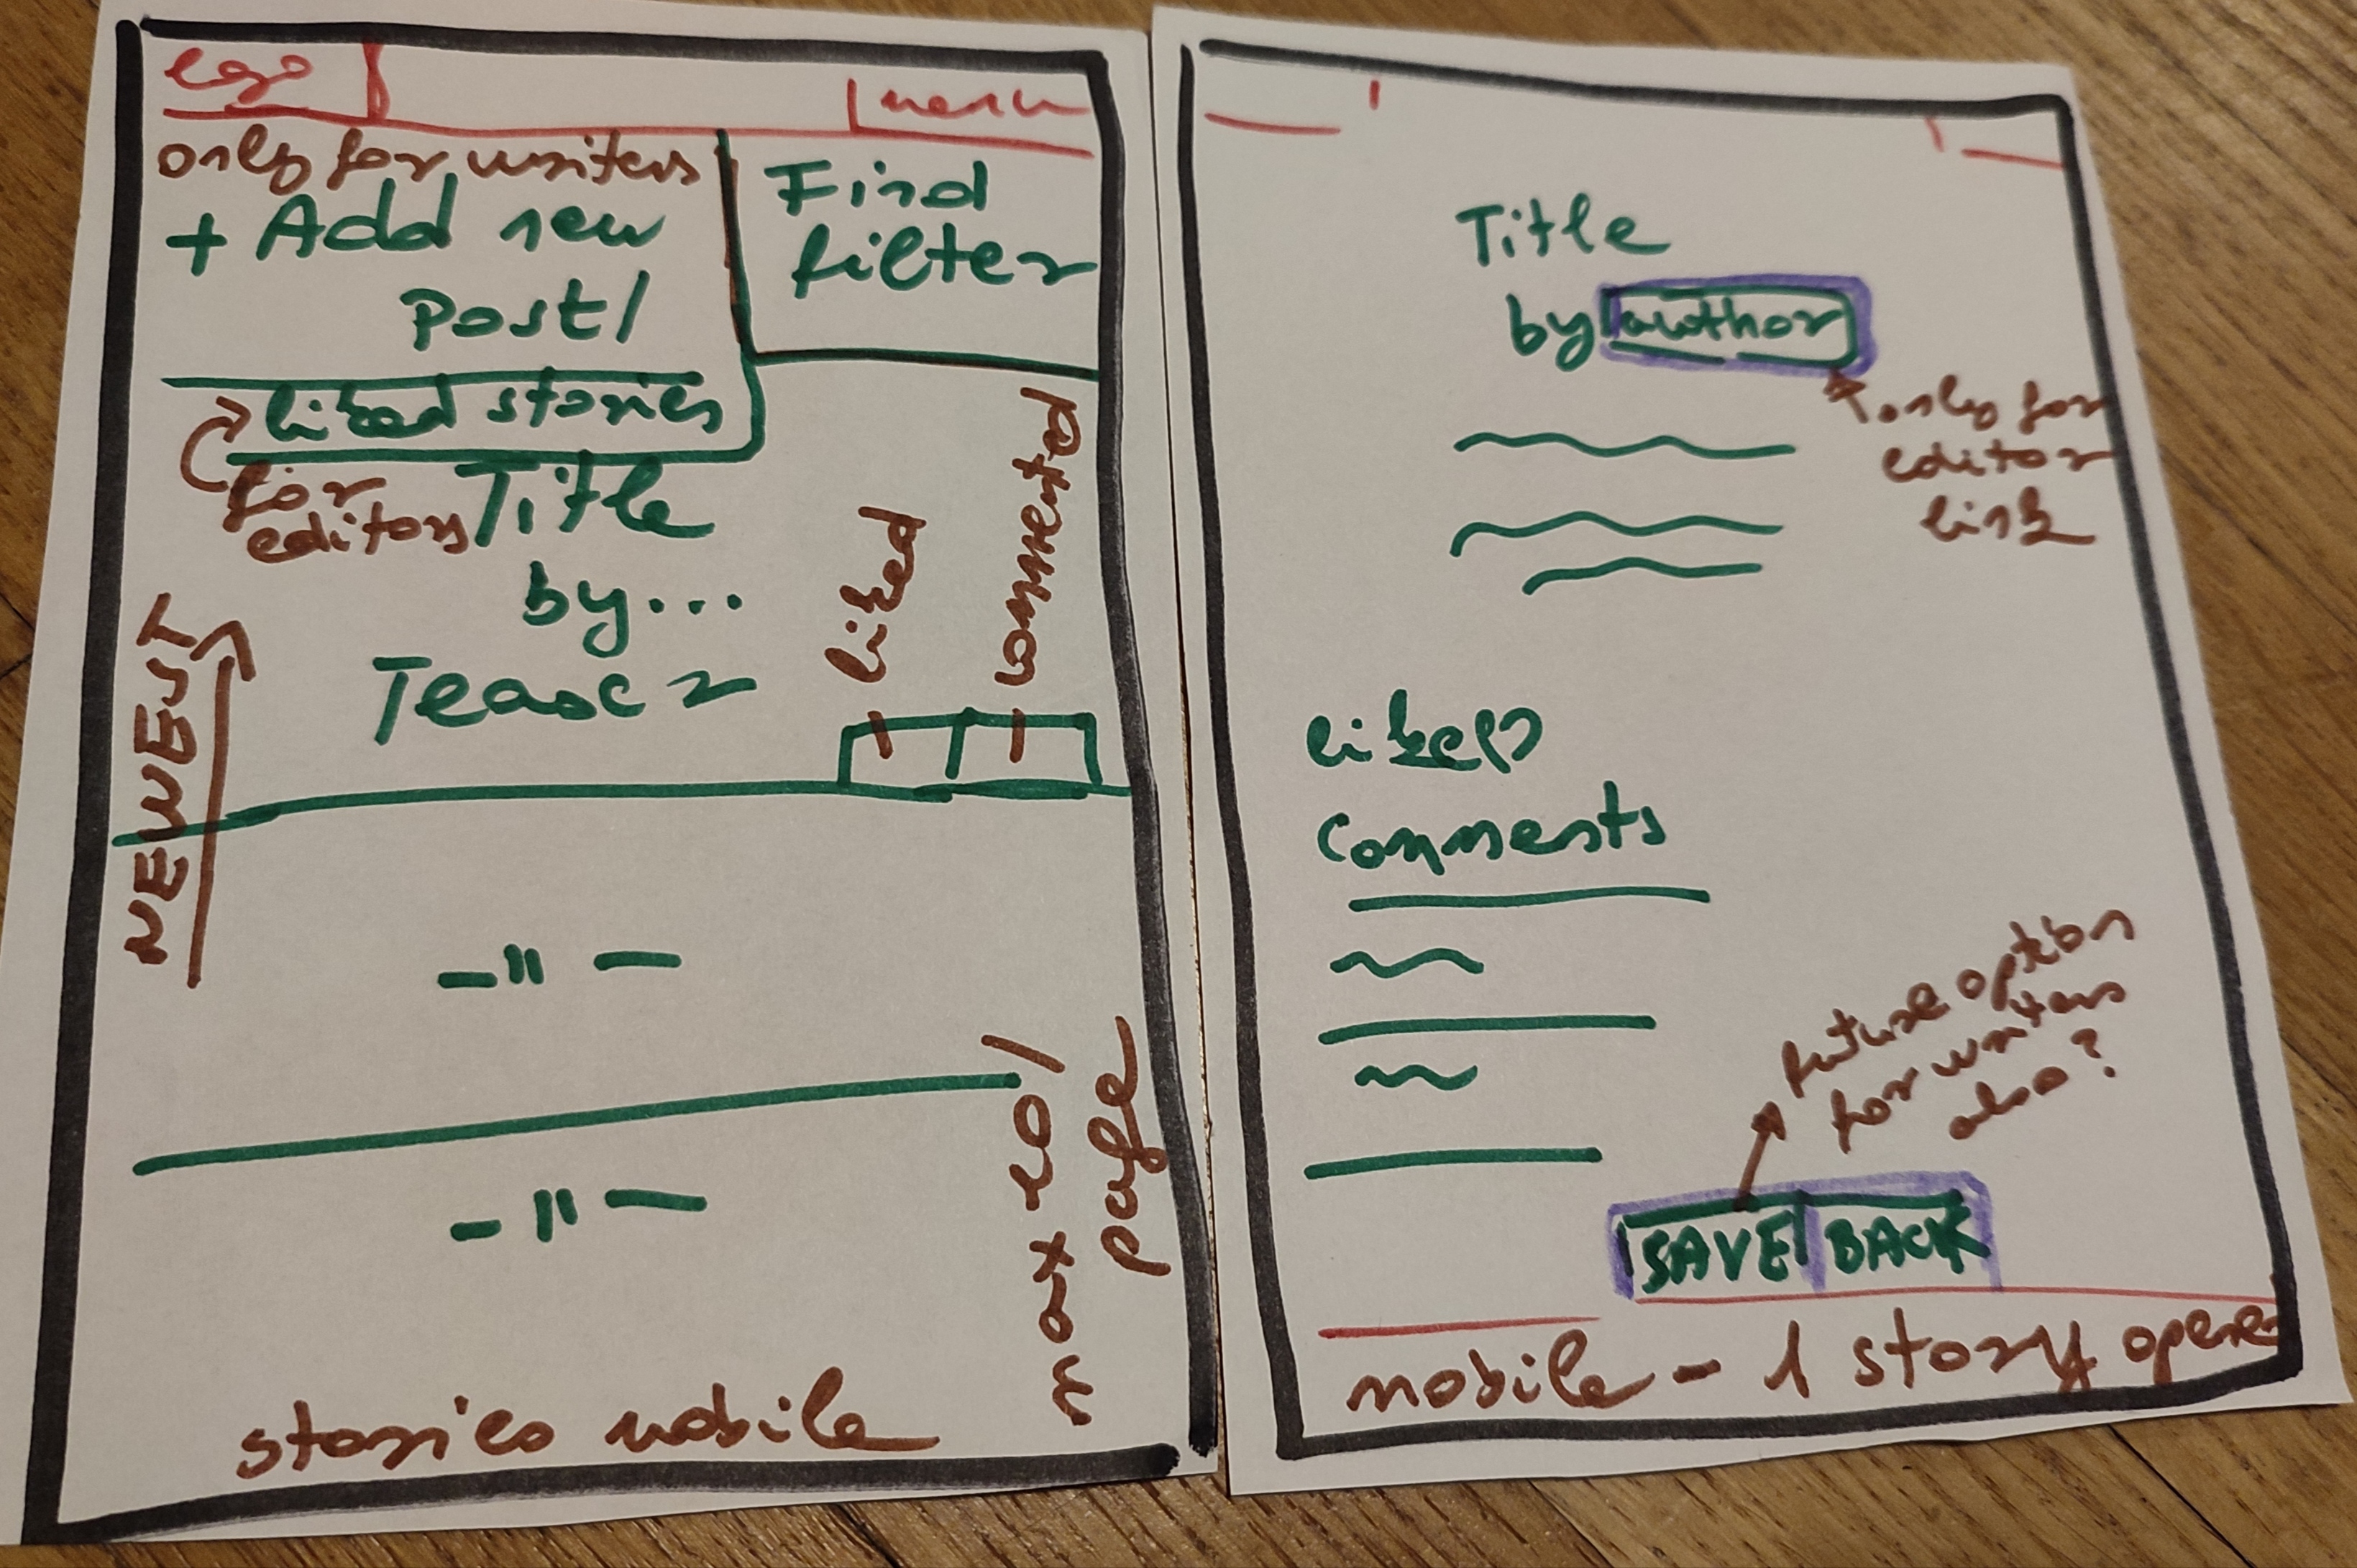 logo
menu
only for writers
+ Add new
Post/
Find
filter
liked stories
for
editors
Title
by...
Teaser
liked
commented
NEWEST
- " -
- " -
max 20/
page
stories mobile
Title
by author
only for
editor
link
like(s)
Comments
future option
for writers
also?
SAVE BACK
mobile - 1 story opene